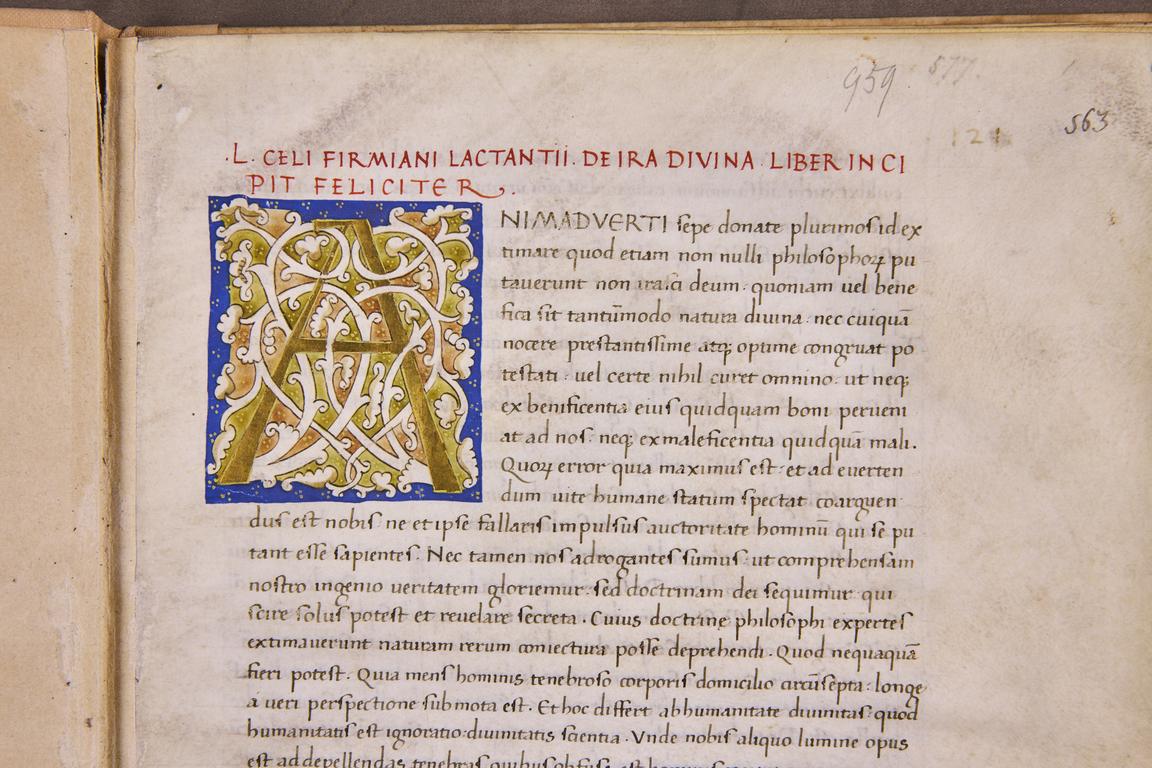 959 577.
563
121
.L. CELI FIRMIANI LACTANTII. DE IRA DIVINA. LIBER INCI
PIT FELICITER,.
ANIMADVERTI sepe donate plurimos id ex
timare quod etiam non nulli philosophoꝝ pu
tauerunt non irasci deum: quoniam uel bene
fica sit tantūmodo natura diuina: nec cuiquā
nocere prestantissime atqꝫ optime congruat po
testati: uel certe nihil curet omnino: ut neqꝫ
ex benificentia eius quidquam boni perueni
at ad nos: neqꝫ ex maleficentia quidquā mali.
Quoꝝ error quia maximus est: et ad euerten
dum uite humane statum spectat coarguen
dus est nobis ne et ipse fallaris impulsus auctoritate hominū qui se pu
tant esse sapientes. Nec tamen nos adrogantes sumus: ut comprehensam
nostro ingenio ueritatem gloriemur: sed doctrinam dei sequimur qui
scire solus potest et reuelare secreta. Cuius doctrine philosophi expertes
extimauerunt naturam rerum coniectura posse deprehendi. Quod nequaquā
fieri potest. Quia mens hominis tenebroso corporis domicilio circūsepta: longe
a ueri perspectione submota est. Et hoc differt ab humanitate diuinitas: quod
humanitatis est ignoratio: diuinitatis scientia. Vnde nobis aliquo lumine opus
est ad depellendas tenebras quibus